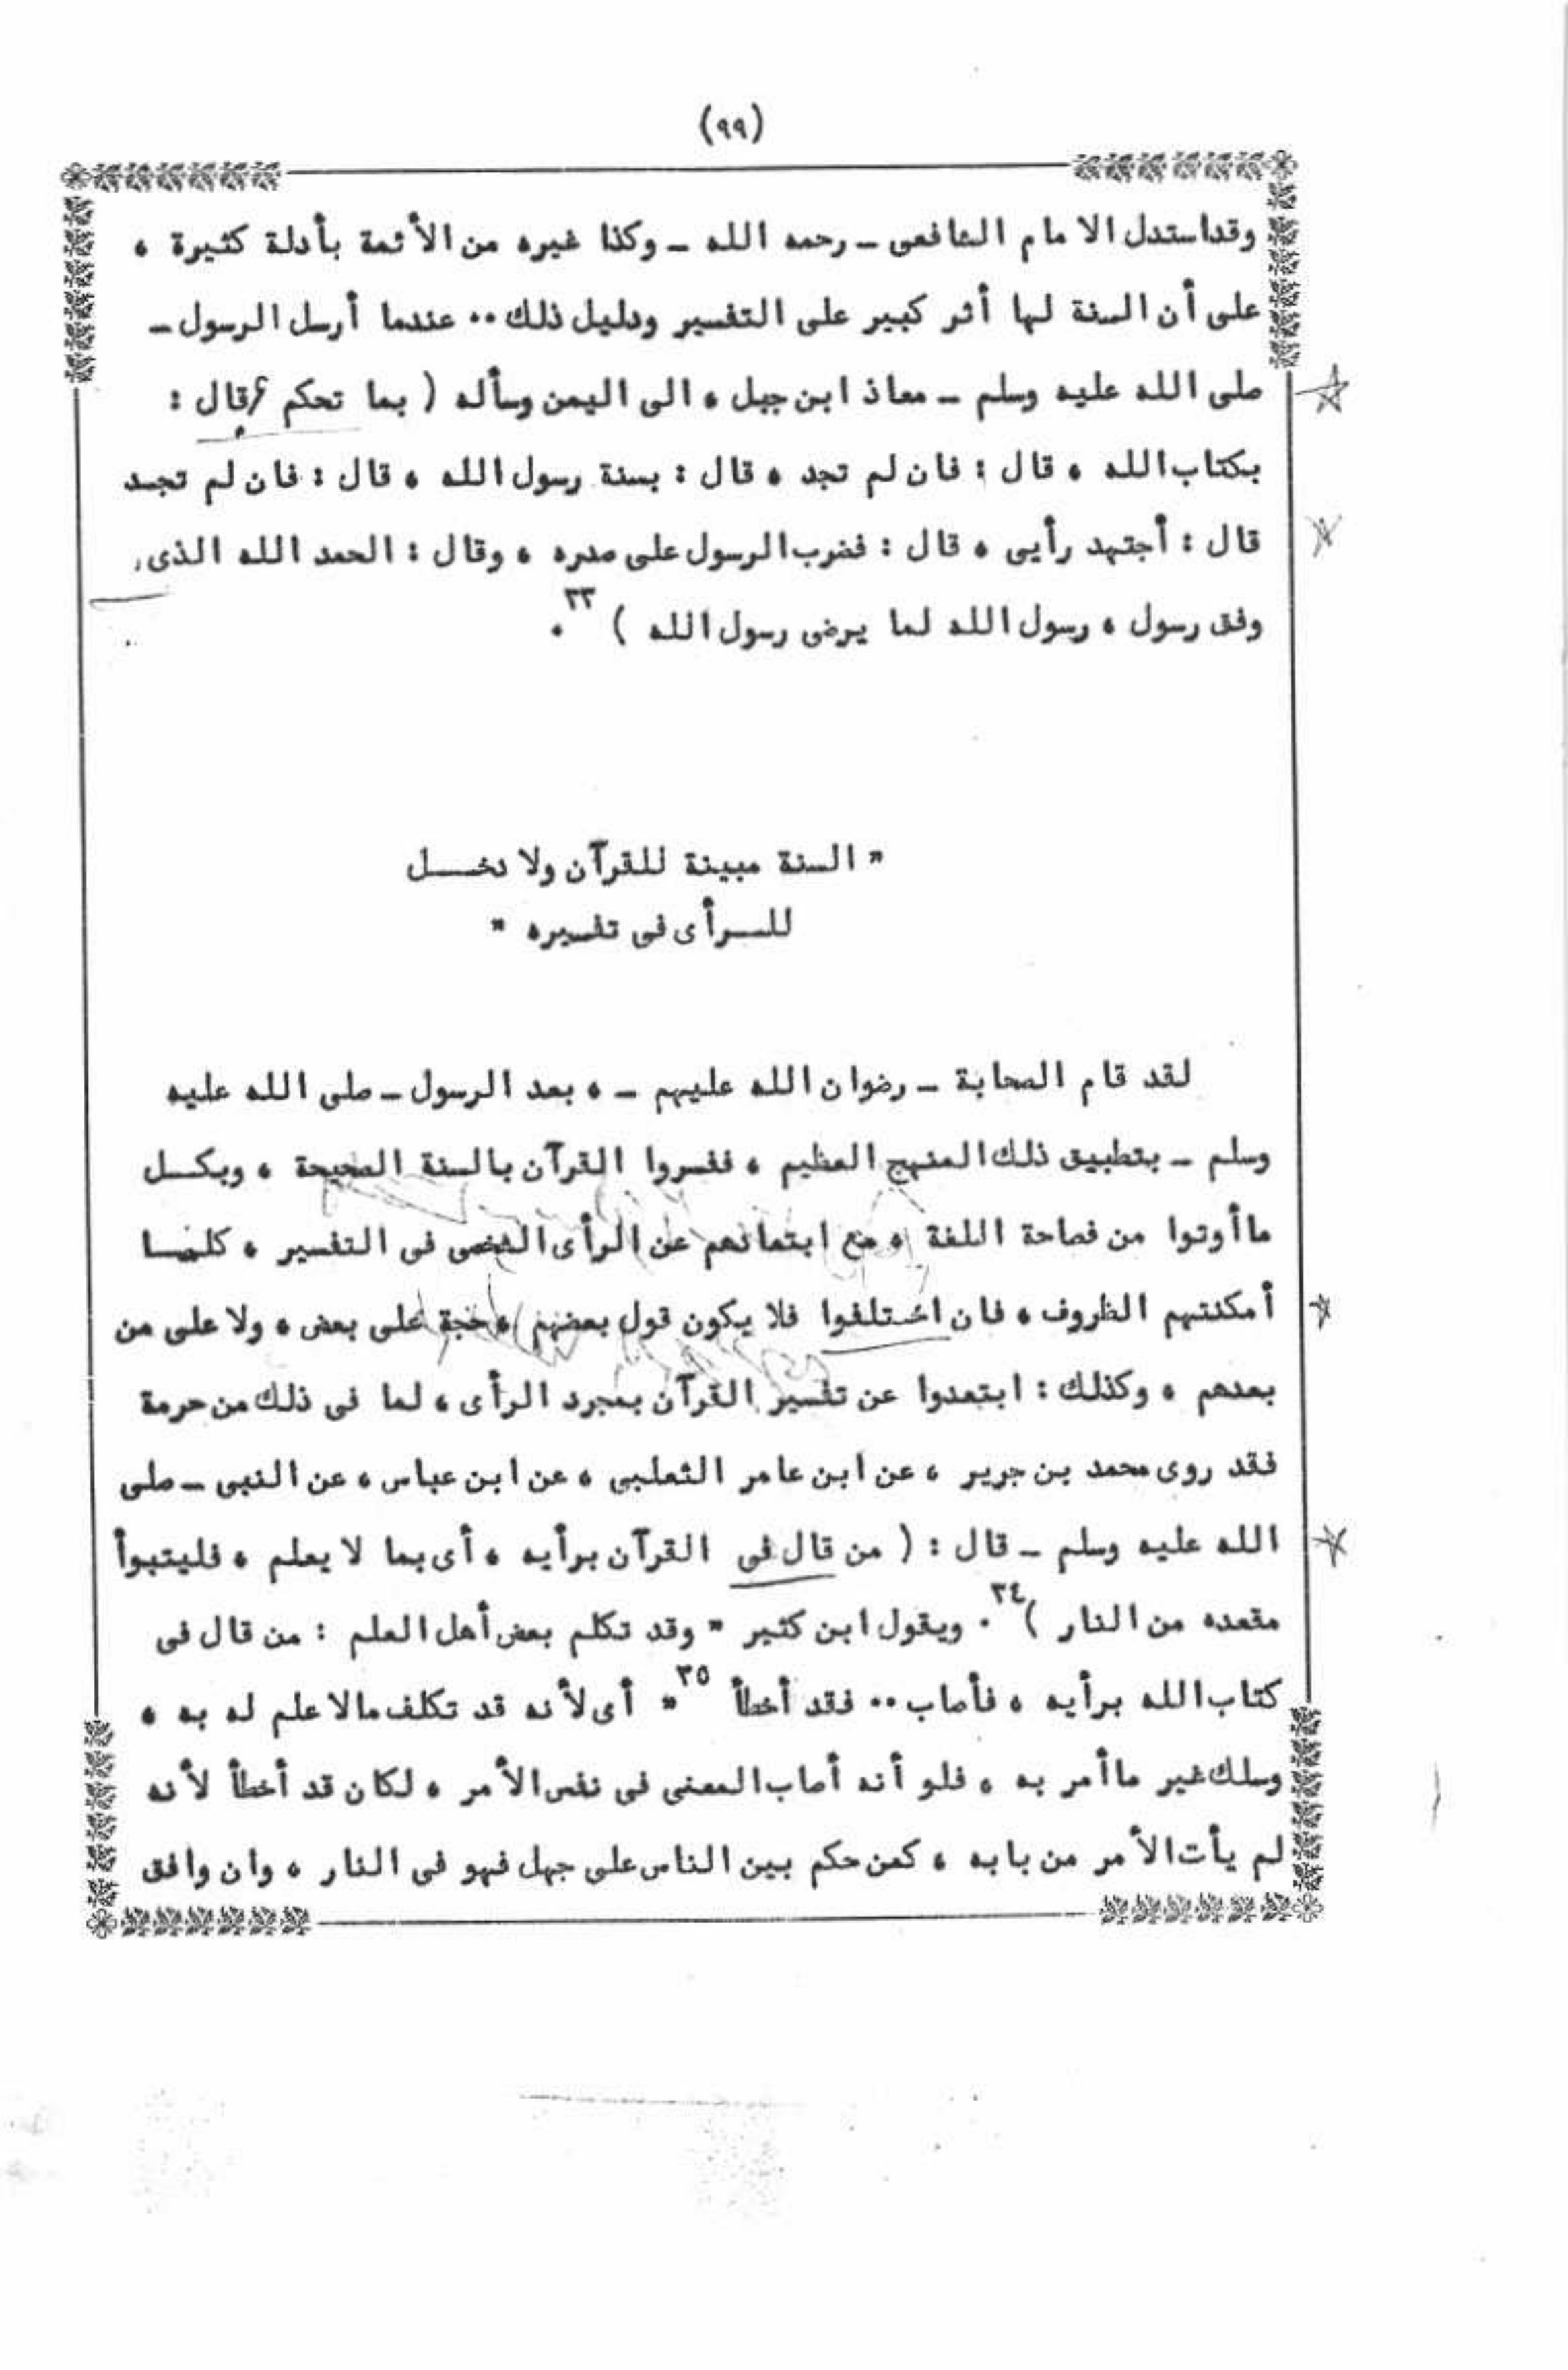 (٩٩)
وقد استدل الامام الشافعى ـ رحمه الله ـ وكذا غيره من الأئمة بأدلة كثيرة ،
على أن السنة لها أثر كبير على التفسير ودليل ذلك .. عندما أرسل الرسول ـ
صلى الله عليه وسلم ـ معاذ ابن جبل ، الى اليمن وسأله ( بما تحكم ؟ قال :
بكتاب الله ، قال : فان لم تجد ، قال : بسنة رسول الله ، قال : فان لم تجد
قال : أجتهد رأيى ، قال : فضرب الرسول على صدره ، وقال : الحمد الله الذى
وفق رسول ، رسول الله لما يرضى رسول الله ) ٣٣ .
" السنة مبينة للقرآن ولا دخل
للرأى فى تفسيره "
لقد قام الصحابة ـ رضوان الله عليهم ـ ، بعد الرسول ـ صلى الله عليه
وسلم ـ بتطبيق ذلك المنهج العظيم ، ففسروا القرآن بالسنة الصحيحة ، وبكل
ما أوتوا من فصاحة اللغة ، مع ابتعادهم عن الرأى الشخصى فى التفسير ، كلما
أمكنتهم الظروف ، فان اختلفوا فلا يكون قول بعضهم ، حجة على بعض ، ولا على من
بعدهم ، وكذلك : ابتعدوا عن تفسير القرآن بمجرد الرأى ، لما فى ذلك من حرمة
فقد روى محمد بن جرير ، عن ابن عامر الثعلبى ، عن ابن عباس ، عن النبى ـ صلى
الله عليه وسلم ـ قال : ( من قال فى القرآن برأيه ، أى بما لا يعلم ، فليتبوأ
مقعده من النار ) ٣٤ . ويقول ابن كثير " وقد تكلم بعض أهل العلم : من قال فى
كتاب الله برأيه ، فأصاب .. فقد أخطأ ٣٥ " أى لأنه قد تكلف مالا علم له به ،
وسلك غير ما أمر به ، فلو أنه أصاب المعنى فى نفس الأمر ، لكان قد أخطأ لأنه
لم يأت الأمر من بابه ، كمن حكم بين الناس على جهل فهو فى النار ، وان وافق